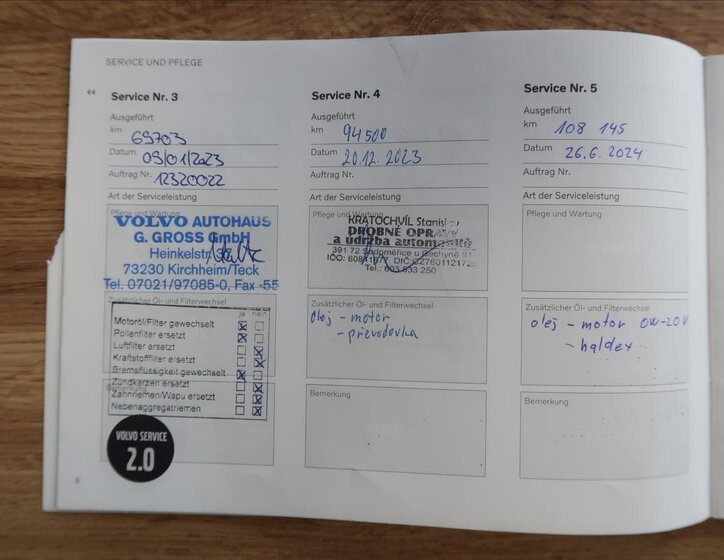 SERVICE UND PFLEGE
Service Nr. 3
Ausgeführt
km 69703
Datum 09/01/2023
Auftrag Nr. 12320022
Art der Serviceleistung
Pflege und Wartung
VOLVO AUTOHAUS
G. GROSS GmbH
Heinkelstr.
73230 Kirchheim/Teck
Tel. 07021/97085-0, Fax -55
Zusätzlicher Öl- und Filterwechsel
ja nein
Motoröl/Filter gewechselt
Pollenfilter ersetzt
Luftfilter ersetzt
Kraftstofffilter ersetzt
Bremsflüssigkeit gewechselt
Zündkerzen ersetzt
Bemerkung
Zahnriemen/Wapu ersetzt
Nebenaggregatriemen
VOLVO SERVICE
2.0
8
Service Nr. 4
Ausgeführt
km 94500
Datum 20.12.2023
Auftrag Nr.
Art der Serviceleistung
Pflege und Wartung
KRATOCHVÍL Stanislav
DROBNÉ OPRAVY
a údržba automobilů
391 72 Sudoměřice u Bechyně
Tel.: 603 533 250
Zusätzlicher Öl- und Filterwechsel
olej - motor
- převodovka
Bemerkung
Service Nr. 5
Ausgeführt
km 108 145
Datum 26.6.2024
Auftrag Nr.
Art der Serviceleistung
Pflege und Wartung
Zusätzlicher Öl- und Filterwechsel
olej - motor 0W-20V
- haldex
Bemerkung